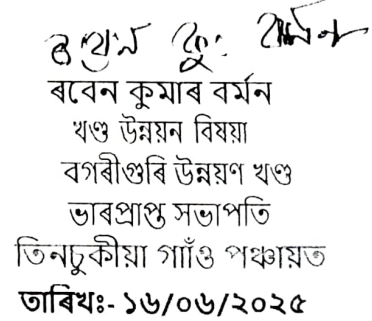 ৰবেন কুমাৰ বৰ্মন
খণ্ড উন্নয়ন বিষয়া
বগৰীগুৰি উন্নয়ণ খণ্ড
ভাৰপ্ৰাপ্ত সভাপতি
তিনচুকীয়া গাাঁও পঞ্চায়ত
তাৰিখঃ- ১৬/০৬/২০২৫